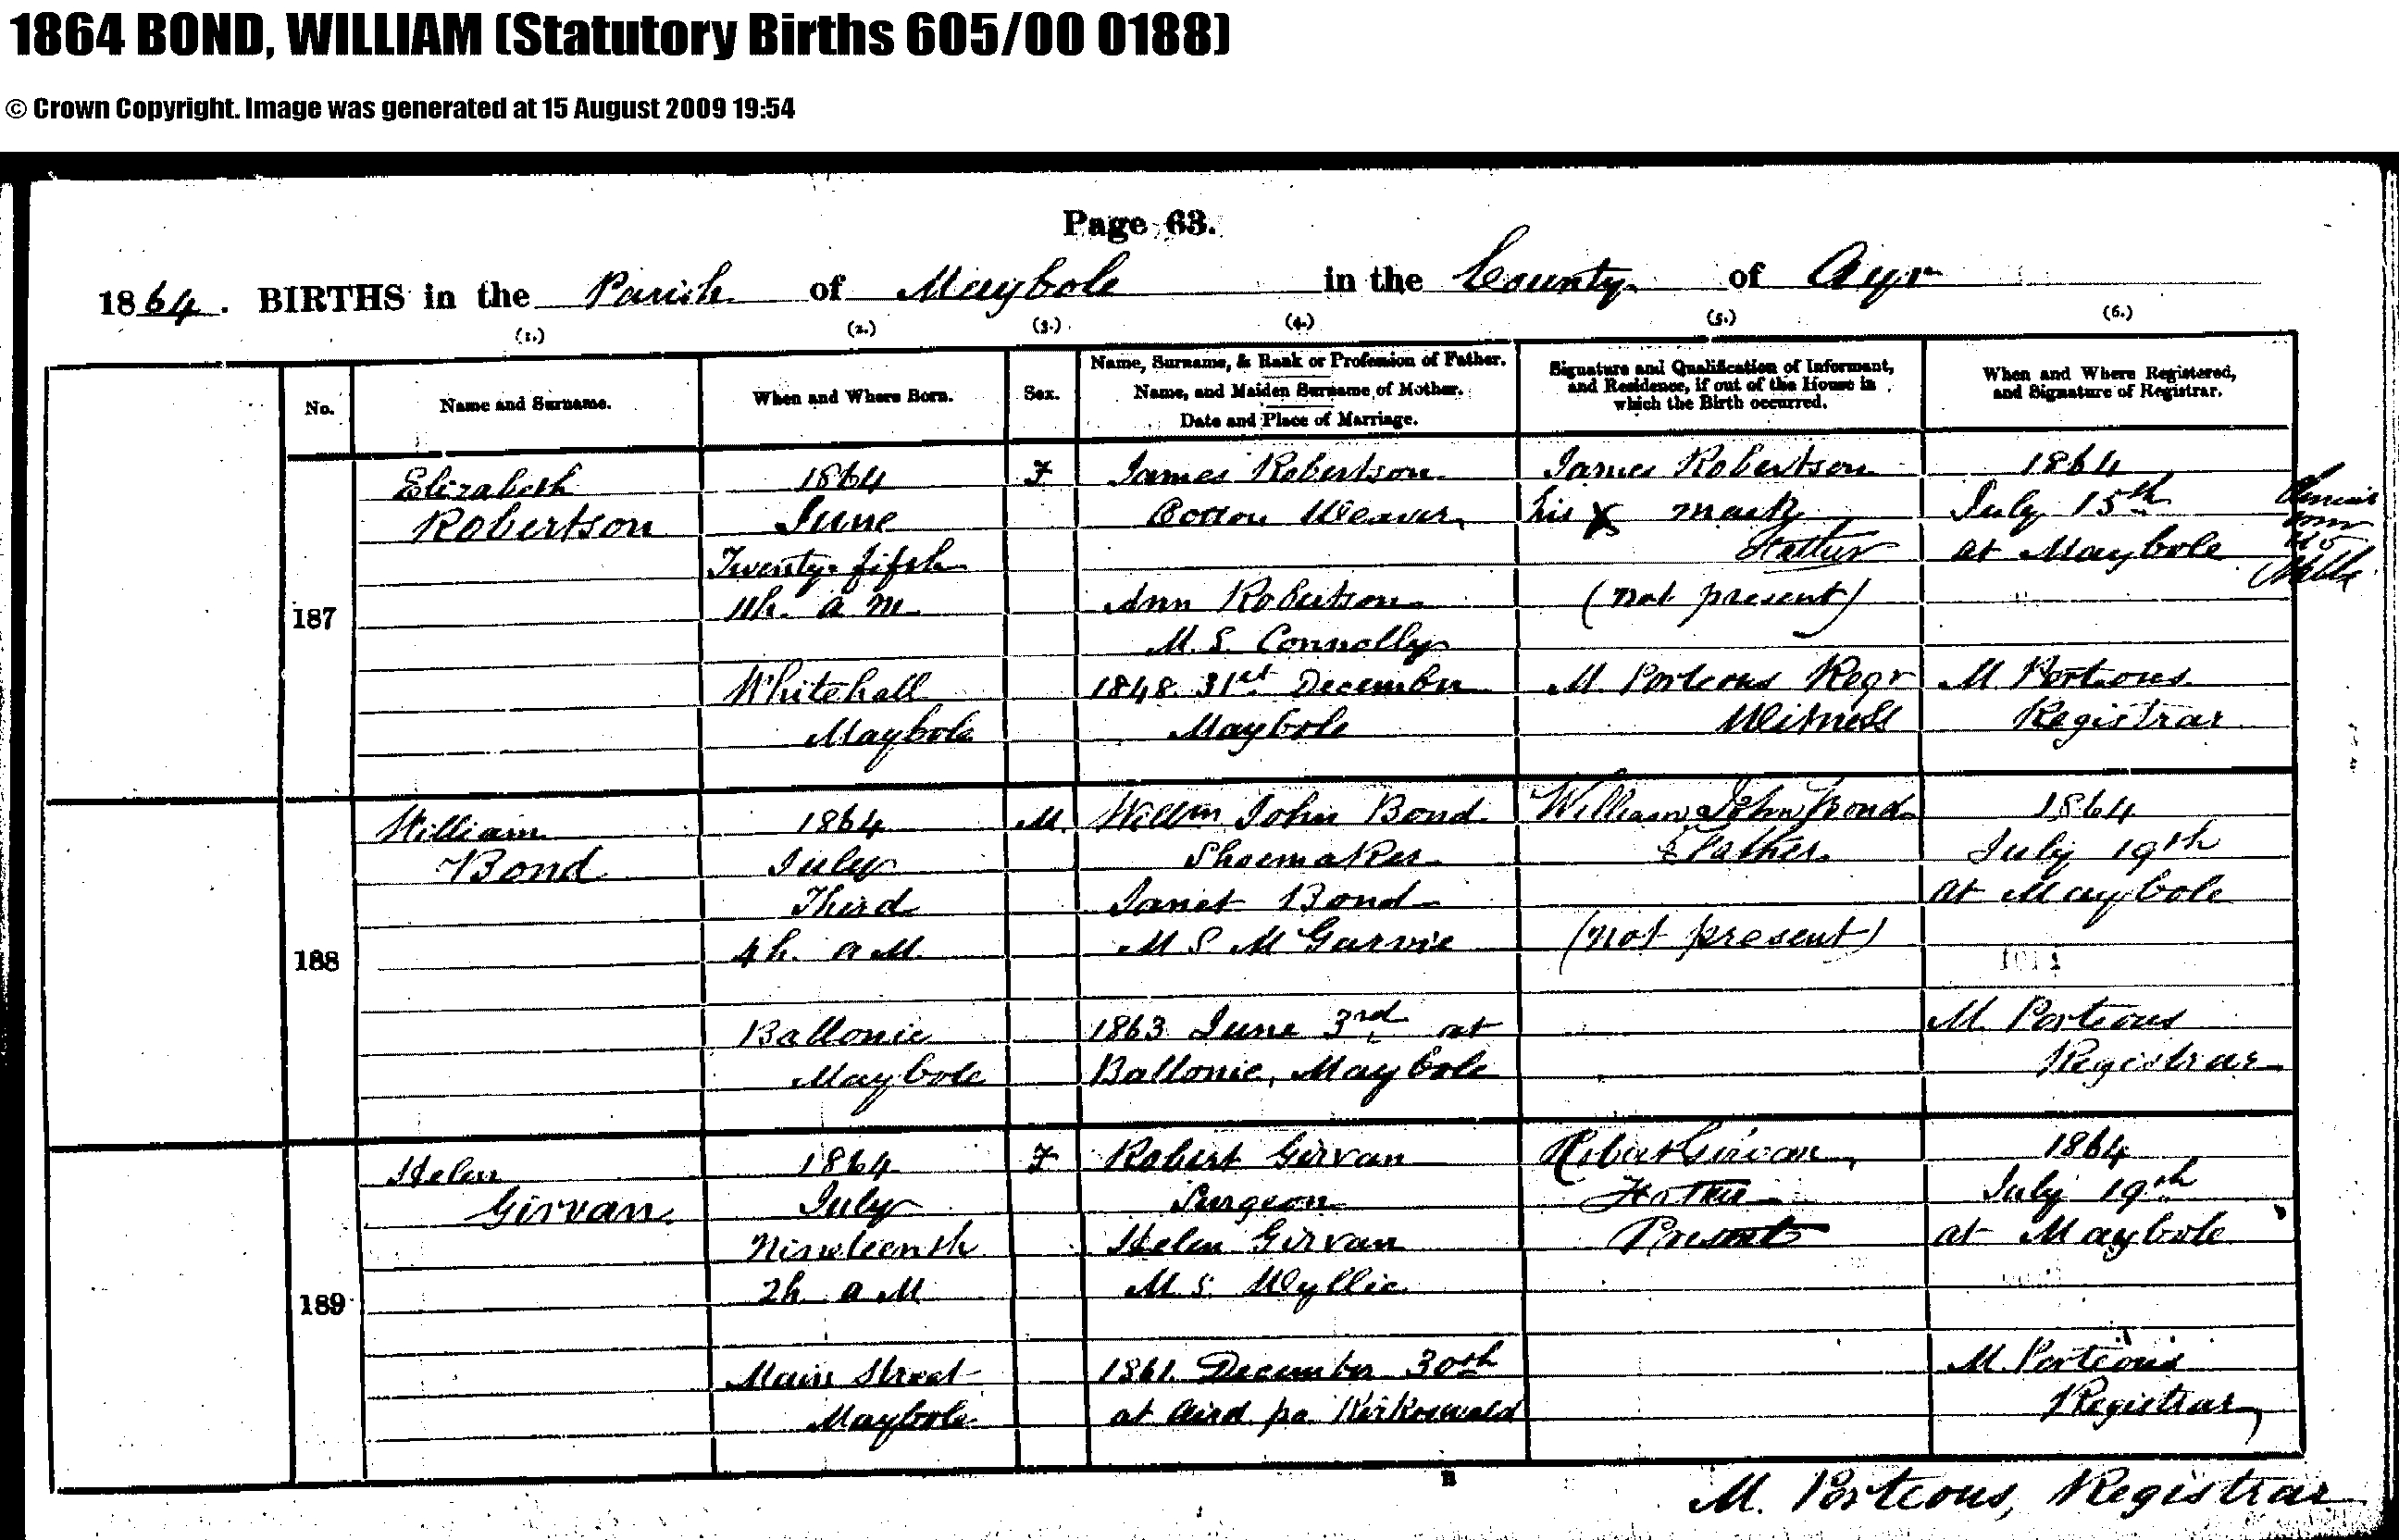 1864 BOND, WILLIAM (Statutory Births 605/00 0188)
© Crown Copyright. Image was generated at 15 August 2009 19:54
Page 63.
1864. BIRTHS in the Parish of Maybole in the County of Ayr
(1.) (2.) (3.) (4.) (5.) (6.)
No.
Name and Surname.
When and Where Born.
Sex.
Name, Surname, & Rank or Profession of Father.
Name, and Maiden Surname of Mother.
Date and Place of Marriage.
Signature and Qualification of Informant,
and Residence, if out of the House in
which the Birth occurred.
When and Where Registered,
and Signature of Registrar.
187
Elizabeth
Robertson
1864
June
Twenty-fifth
11h. a m.
Whitehall
Maybole
F
James Robertson
Cotton Weaver
Ann Robertson
M. S. Connolly
1848. 31st December
Maybole
James Robertson
his x mark
Father
(not present)
M. Porteous Regr
Witness
1864
July 15th
at Maybole
M. Porteous
Registrar
188
William
Bond
1864
July
Third
4h. a M.
Ballonie
Maybole
M.
Willm John Bond
Shoemaker
Janet Bond
M S McGarvie
1863 June 3rd at
Ballonie, Maybole
William John Bond
Father.
(not present)
1864
July 19th
at Maybole
M. Porteous
Registrar
189
Helen
Girvan
1864
July
Nineteenth
2h. a M
Main Street
Maybole
F
Robert Girvan
Surgeon
Helen Girvan
M. S. Wyllie
1861. December 30th
at Aird pa Kirkoswald
Robert Girvan
Father
Present
1864
July 19th
at Maybole
M. Porteous
Registrar
B
M. Porteous, Registrar